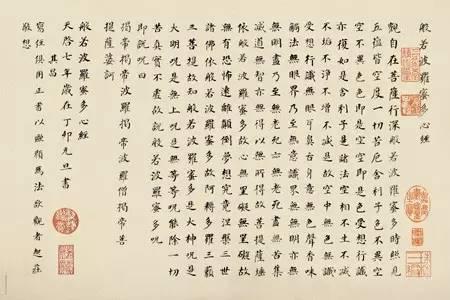 般若波羅蜜多心經
觀自在菩薩行深般若波羅蜜多時照見
五蘊皆空度一切苦厄舍利子色不異空
空不異色色即是空空即是色受想行識
亦復如是舍利子是諸法空相不生不滅
不垢不淨不增不減是故空中無色無
受想行識無眼耳鼻舌身意無色聲香味
觸法無眼界乃至無意識界無無明亦無
無明盡乃至無老死亦無老死盡無苦集
滅道無智亦無得以無所得故菩提薩埵
依般若波羅蜜多故心無罣礙無罣礙故
無有恐怖遠離顛倒夢想究竟涅槃三世
諸佛依般若波羅蜜多故阿耨多羅三藐
三菩提故知般若波羅蜜多是大神呪是
大明呪是無上呪是無等等呪能除一切
苦真實不虛故說般若波羅蜜多呪
即說呪曰
揭帝揭帝波羅揭帝波羅僧揭帝菩
提薩婆訶
般若波羅蜜多心經
天啓七年歲在丁卯元旦書
其昌
寫經須用正書以歐顏為法欲觀者起莊
敬想